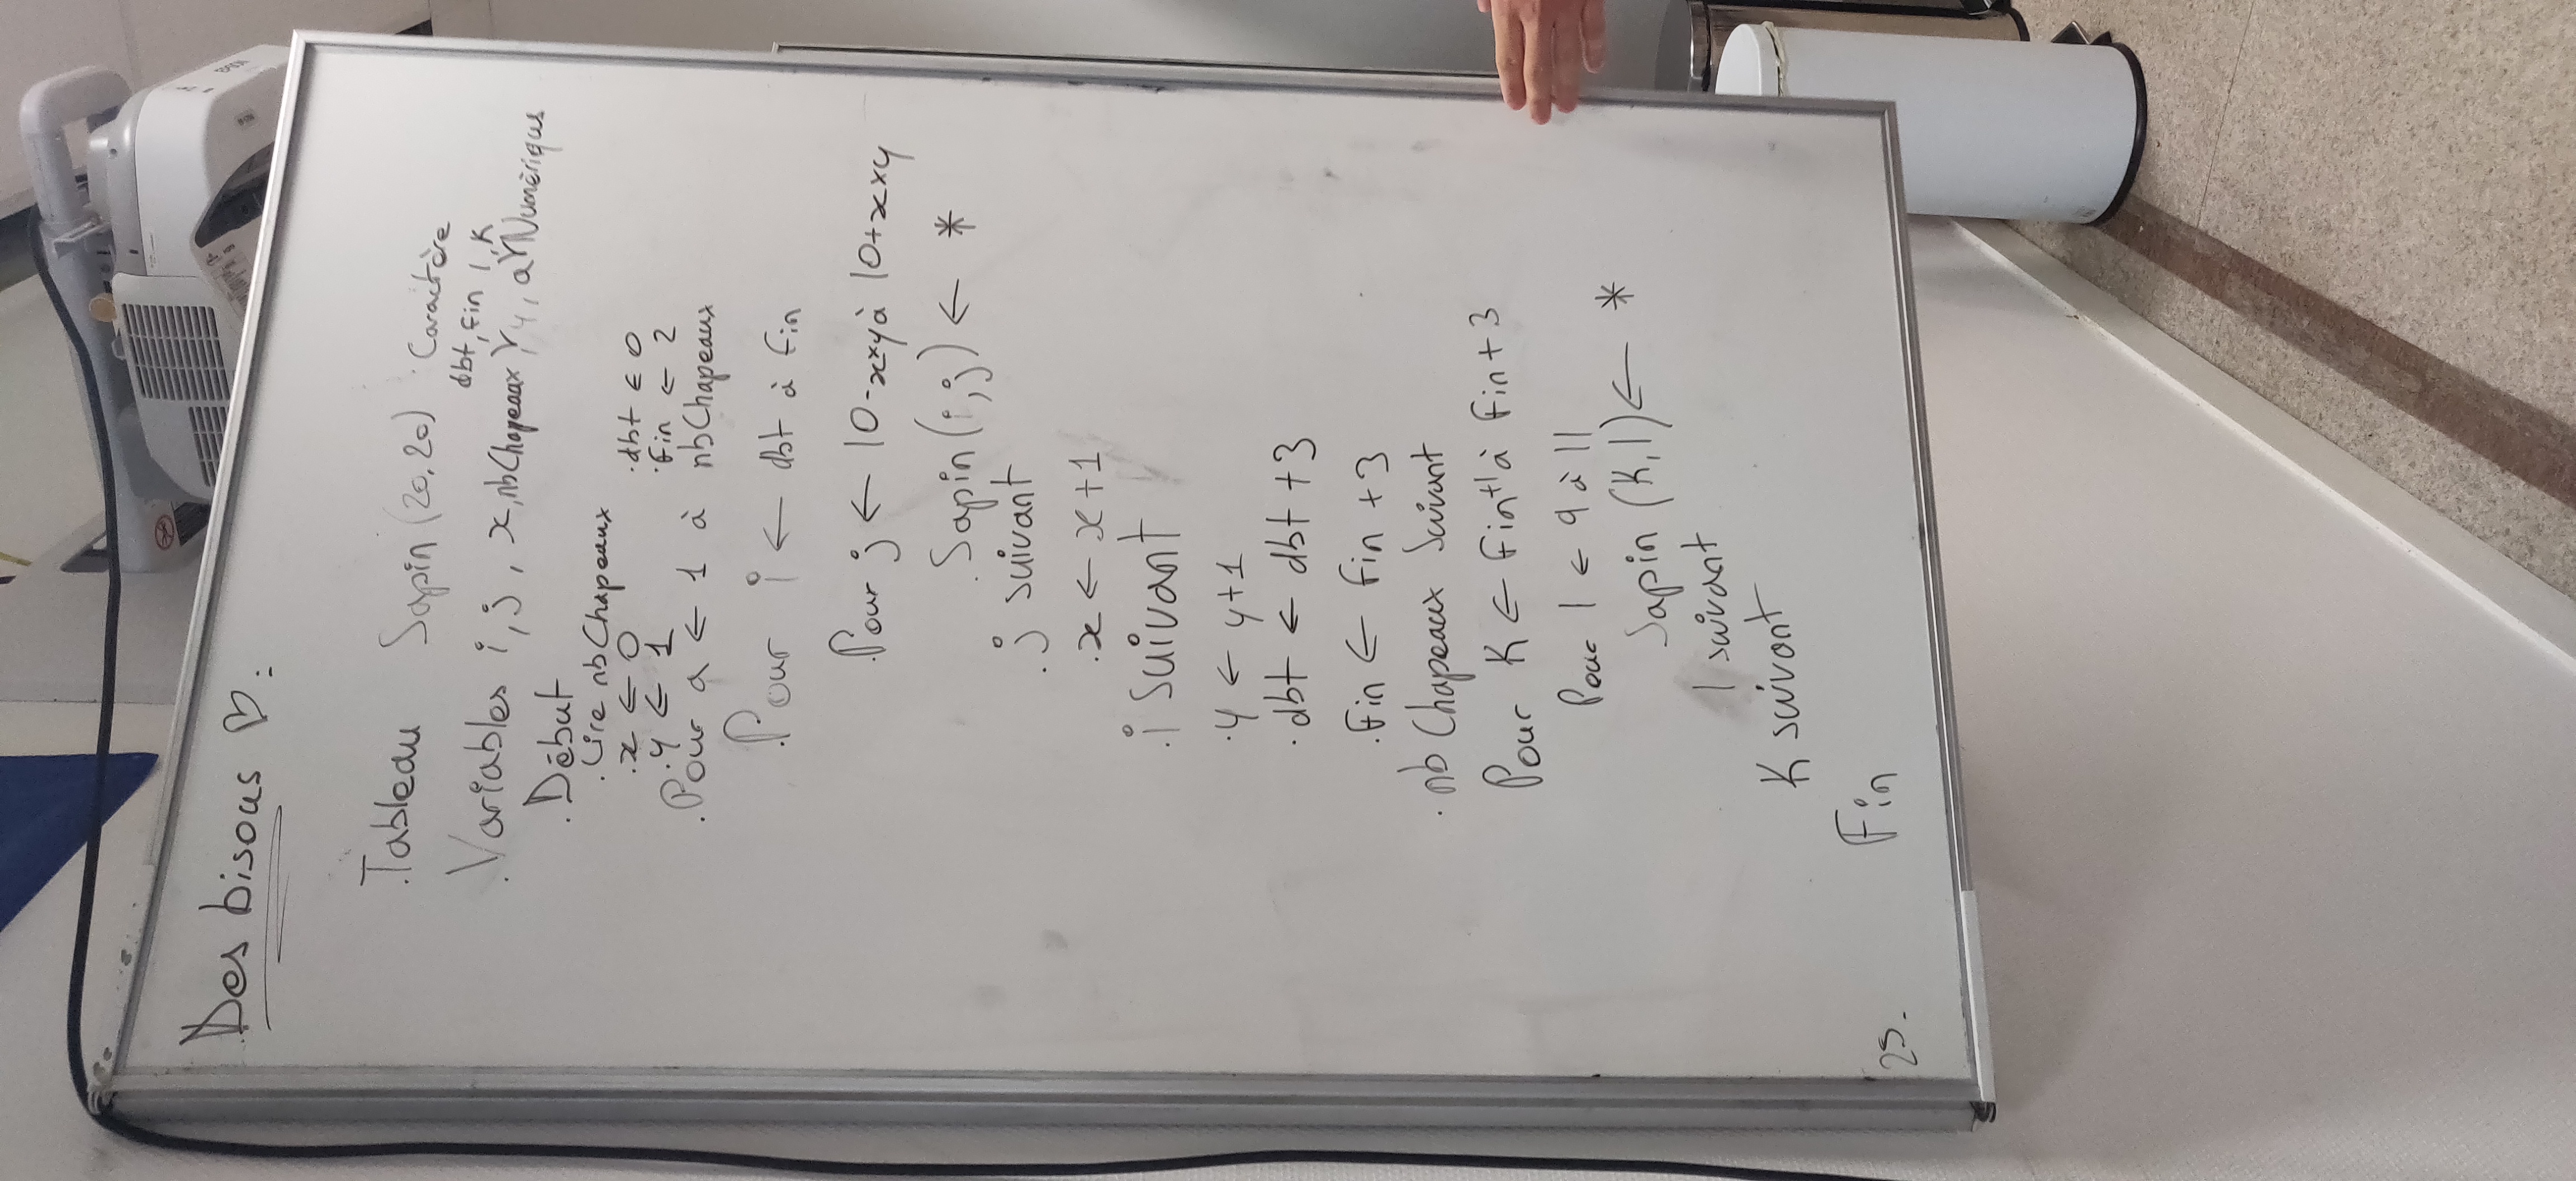 Des bisous ♡ :
.Tableau Sapin (20,20) Caractère
dbt, fin l, K
.Variables i, j, x, nbChapeaux, y, a Numériqus
.Début
.Lire nbChapeaux
.x ← 0 .dbt ← 0
.y ← 1 .Fin ← 2
.Pour a ← 1 à nbChapeaux
.Pour i ← dbt à fin
.Pour j ← 10-x×y à 10+x×y
.Sapin (i,j) ← *
.j suivant
.x ← x+1
.i suivant
.y ← y+1
.dbt ← dbt +3
.Fin ← Fin +3
.nb Chapeaux Suivant
Pour K ← Fin+1 à Fin+3
Pour l ← 9 à 11
Sapin (K,l) ← *
l suivant
K suivant
Fin
25.
EPSON